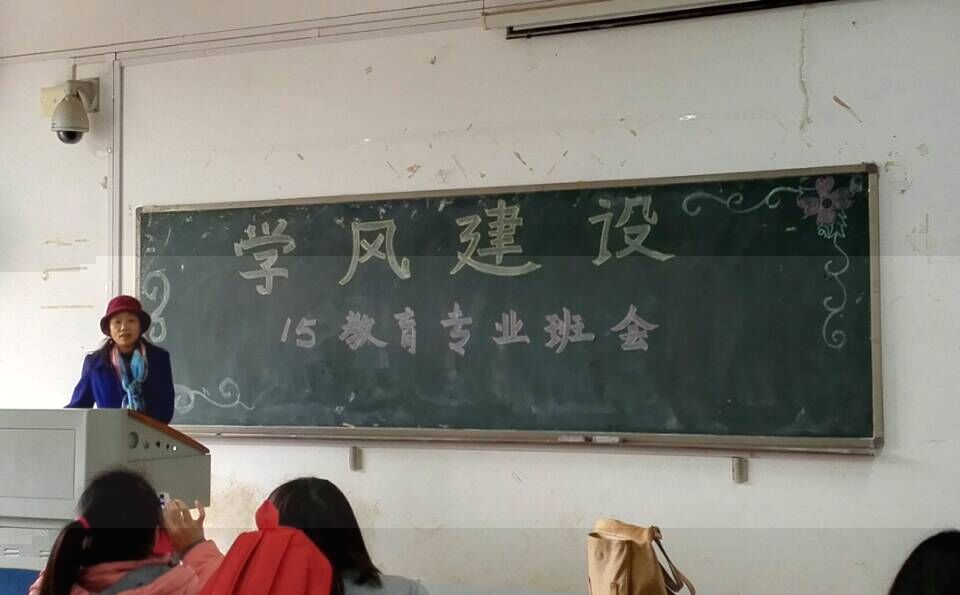 学风建设
15教育专业班会